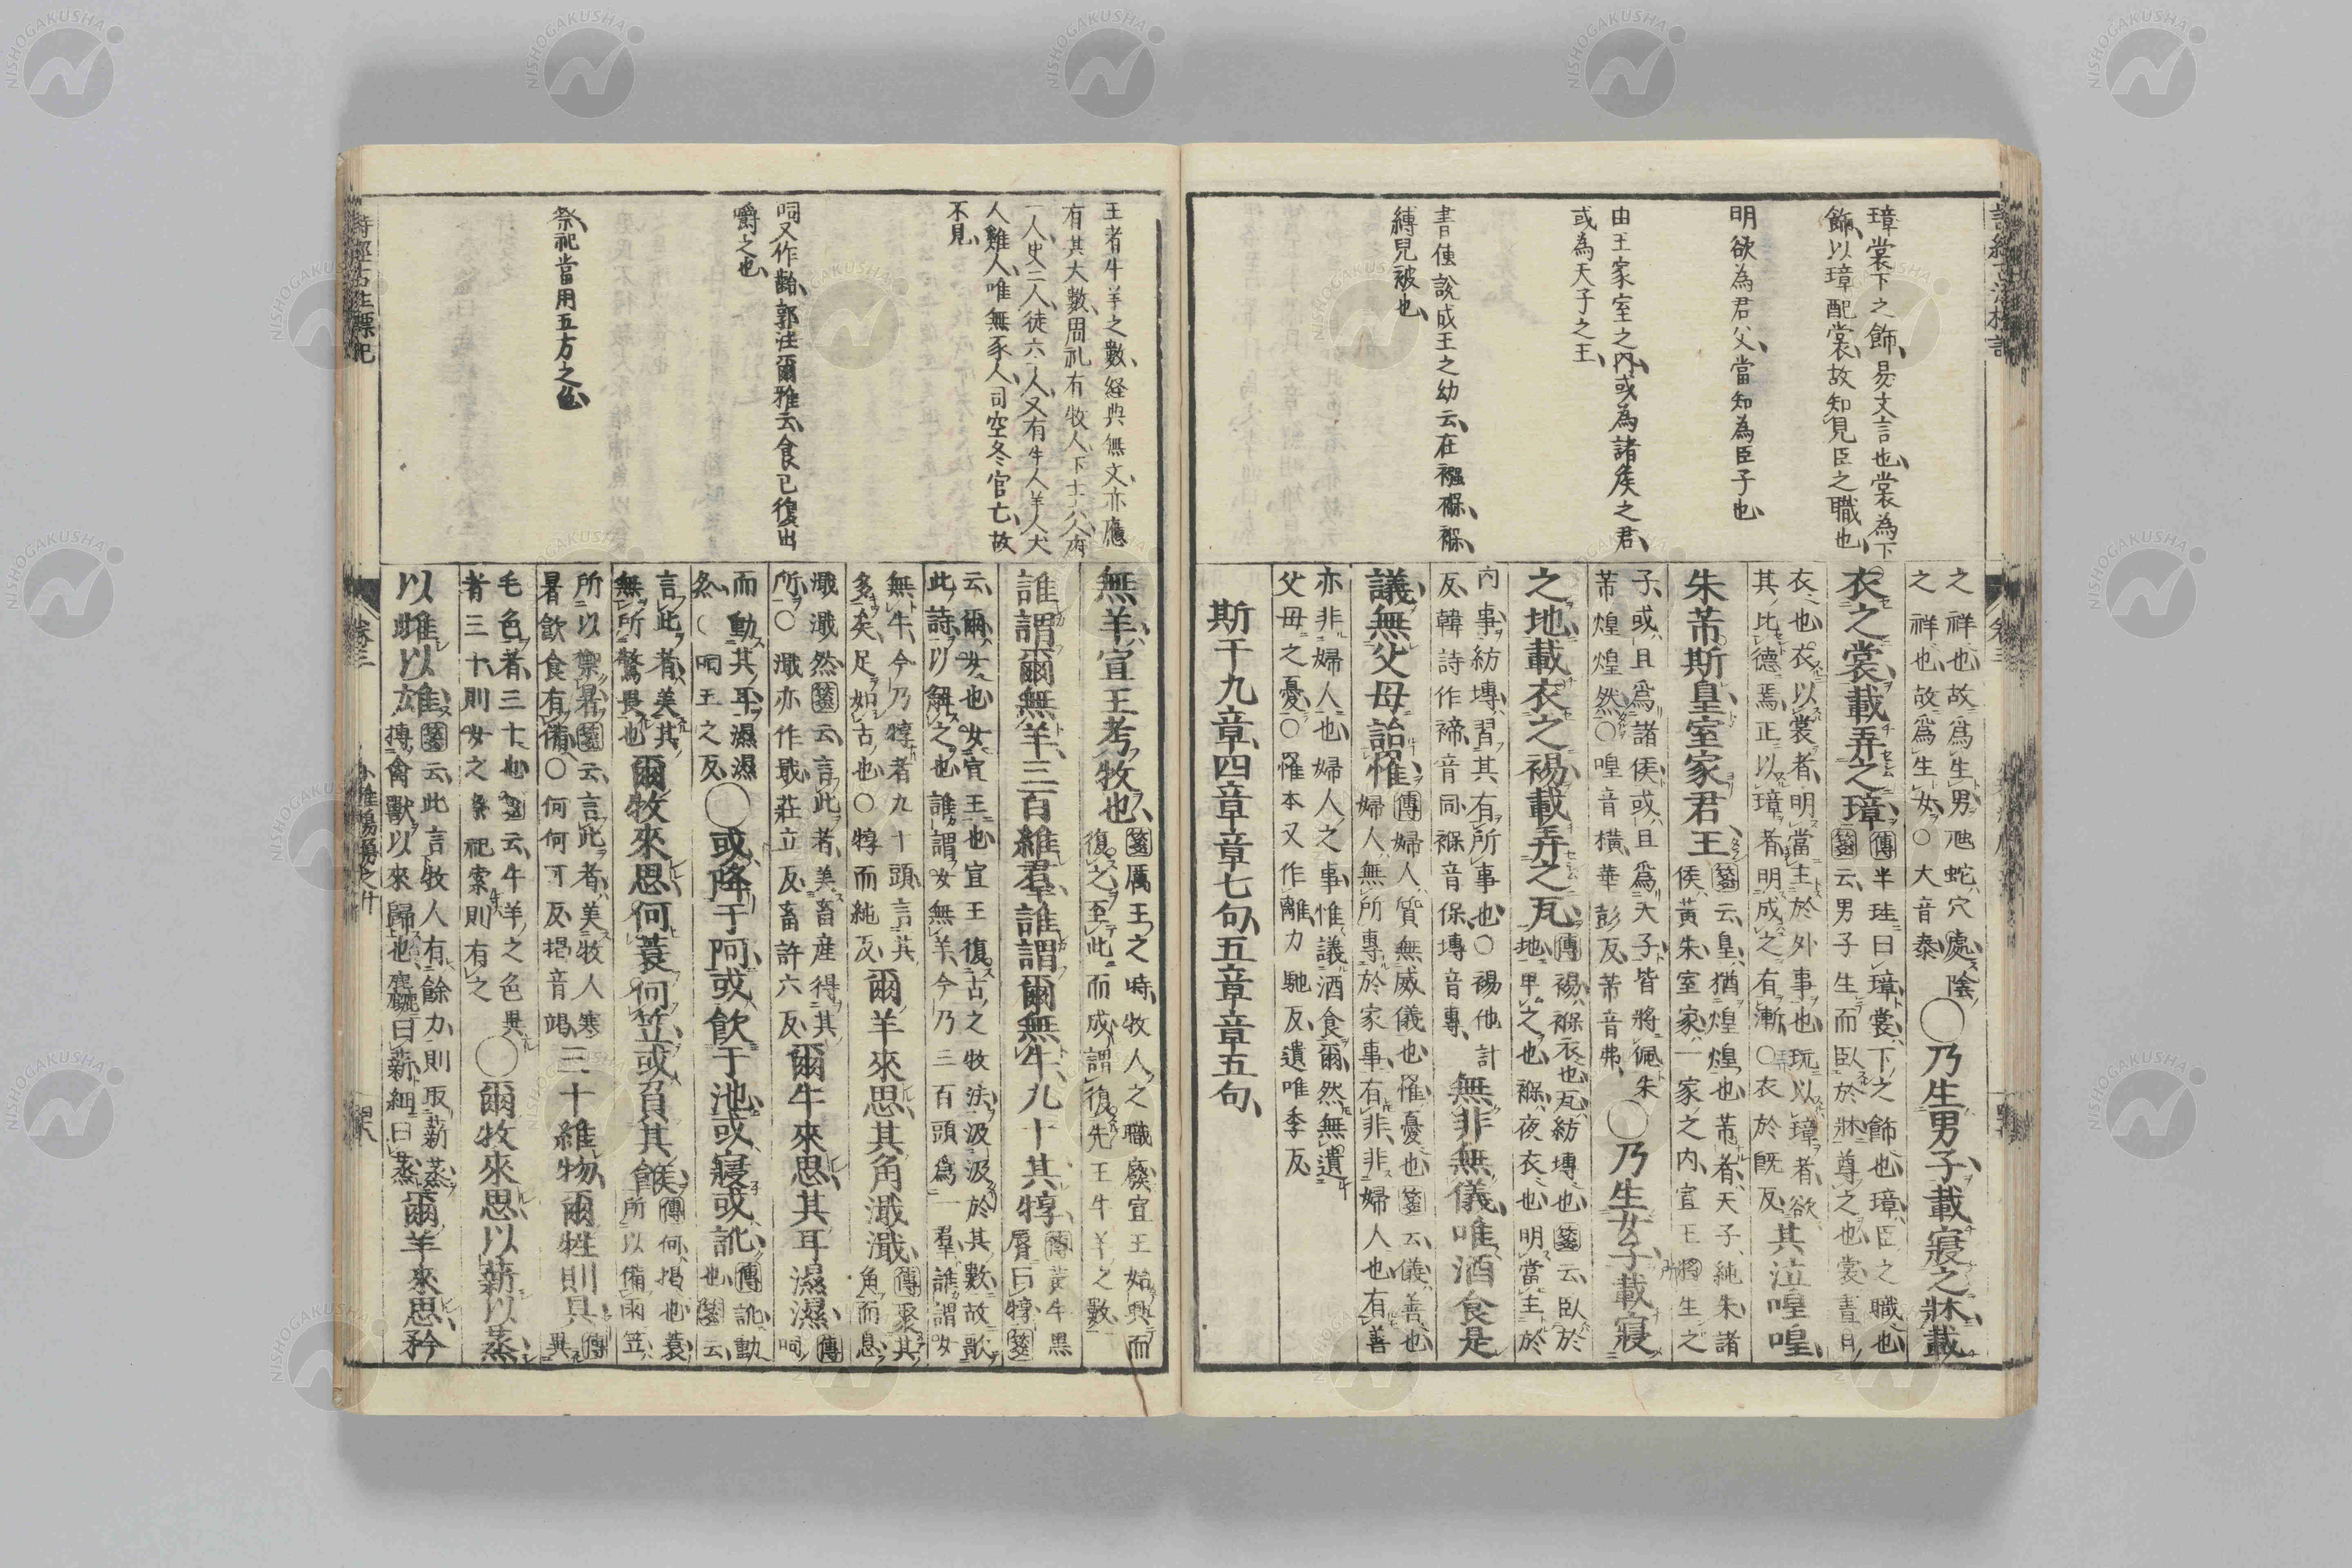 璋裳下之飾、易文言也、裳為下
飾、以璋配裳、故知見臣之職也、
明欲為君父、當知為臣子也、
由王家室之內、或為諸矦之君、
或為天子之王、
書傳說成王之幼云、在襁褓、褓、
縛兒被也、
之祥也、故爲生男、虺蛇穴處、陰
之祥也、故爲生女、○大音泰
○乃生男子、載寢之牀、載
衣之裳、載弄之璋、
傳半珪曰璋、裳、下之飾也、璋、臣之職也、
箋云、男子生而臥於牀、尊之也、裳、晝日
衣也、衣以裳者、明當主於外事也、玩以璋者、欲
其比德焉、正以璋者、明成之有漸、○衣於旣反
其泣喤喤、
朱芾斯皇、室家君王、
箋云、皇、猶煌煌也、芾者、天子純朱、諸
侯黃朱、室家、一家之內、宣王將生之
子、或且爲諸侯、或且爲天子、皆將佩朱
芾煌煌然、○喤音橫、華彭反、芾音弗、
○乃生女子、載寢
之地、載衣之裼、載弄之瓦、
傳裼、褓衣也、瓦、紡塼也、箋云、臥於
地、卑之也、褓、夜衣也、明當主於
內事、紡塼、習其有所事也、○裼他計
反、韓詩作禘、音同、褓音保、塼音專、
無非無儀、唯酒食是
議、無父母詒罹、
傳婦人質無威儀也、罹、憂也、箋云、儀、善也、
婦人、無所專於家事、有非、非婦人也、有善
亦非婦人也、婦人之事、惟議酒食爾、然無遺
父母之憂、○罹本又作離、力馳反、遺唯季反
斯干九章、四章章七句、五章章五句、
王者牛羊之數、経典無文、亦應
有其大數、周礼有牧人下士六人、府
一人、史二人、徒六人、又有牛人羊人犬
人雞人、唯無豕人、司空冬官亡、故
不見、
呞又作齝、郭注爾雅云、食已復出
嚼之也、
祭祀當用五方之色、
無羊、宣王考牧也、
箋厲王之時、牧人之職廢、宣王始興而
復之、至此而成、謂復先王牛羊之數、
誰謂爾無羊、三百維羣、誰謂爾無牛、九十其犉、
傳黃牛黑
脣曰犉、箋
云、爾、女也、女、宣王也、宣王復古之牧法、汲汲於其數、故歌
此詩以解之也、誰謂女無羊、今乃三百頭爲一羣、誰謂女
無牛、今乃犉者九十頭、言其
多矣、足如古也、○犉而純反
爾羊來思、其角濈濈、
傳聚其
角而息、
濈濈然、箋云、言此者、美畜産得其
所、○濈亦作戢、莊立反、畜許六反
爾牛來思、其耳濕濕、
傳
呞
而動其耳、濕濕
然、呞王之反、
○或降于阿、或飲于池、或寢或訛、
傳訛動
也、箋云、
言此者、美其
無所驚畏也
爾牧來思、何蓑何笠、或負其餱、
傳何、揭也、蓑、
所以備雨、笠、
所以禦暑、箋云、言此者、美牧人寒
暑飲食有備、○何何可反、揭音竭、
三十維物、爾牲則具、
傳
異
毛色者、三十也、箋云、牛羊之色異
者三十、則女之祭祀、索則有之
○爾牧來思、以薪以蒸、
以雌以雄、
箋云、此言牧人有餘力、則取薪蒸、
搏禽獸以來歸也、麤曰薪、細曰蒸
爾羊來思、矜
詩經古注標記
卷三
小雅鴻鴈之什